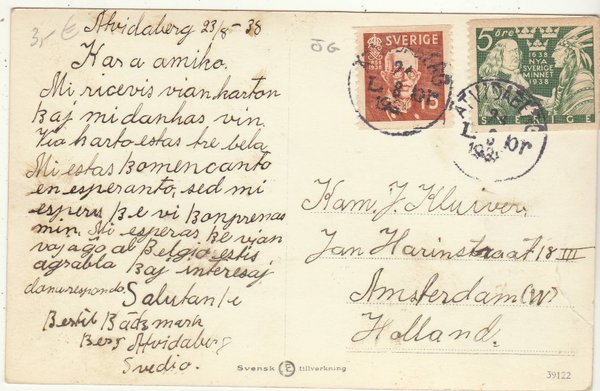 3,- €
Atvidaberg 23/8-38
ÖG
Kara amiko.
Mi ricevis vian karton
kaj mi dankas vin.
Via karto estas tre bela.
Mi estas komencanto
en esperanto, sed mi
esperu ke vi konprenas
min. Mi esperas ke vian
vojaĝo al Belgio estis
agrabla kaj interesaj
donu respondo. Salutante
Bertil Bäckmark
Berg Atvidaberg
Svedio.
SVERIGE
1858 1938
15
5 öre
1638
NYA
SVERIGE
MINNET
1938
SVERIGE
ÅTVIDABERG
23
8
LBR
Kam. J. Kluiver
Jan Harinstraat 18 III
Amsterdam (W)
Holland.
Svensk tillverkning
39122